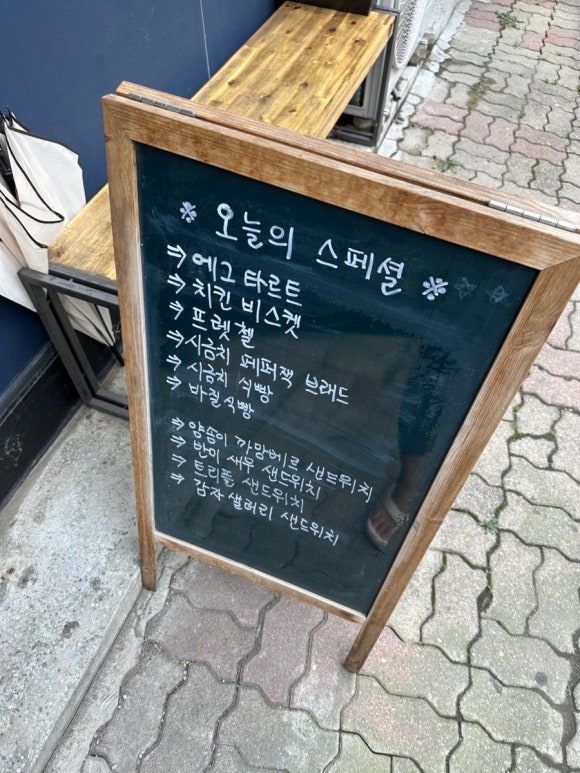 ※ 오늘의 스페셜 ※
⇒ 에그 타르트
⇒ 치킨 비스켓
⇒ 프렛첼
⇒ 시금치 페퍼잭 브래드
⇒ 시금치 식빵
⇒ 바질식빵
⇒ 양송이 까망베르 샌드위치
⇒ 반미 새우 샌드위치
⇒ 트리플 샌드위치
⇒ 감자샐러리 샌드위치